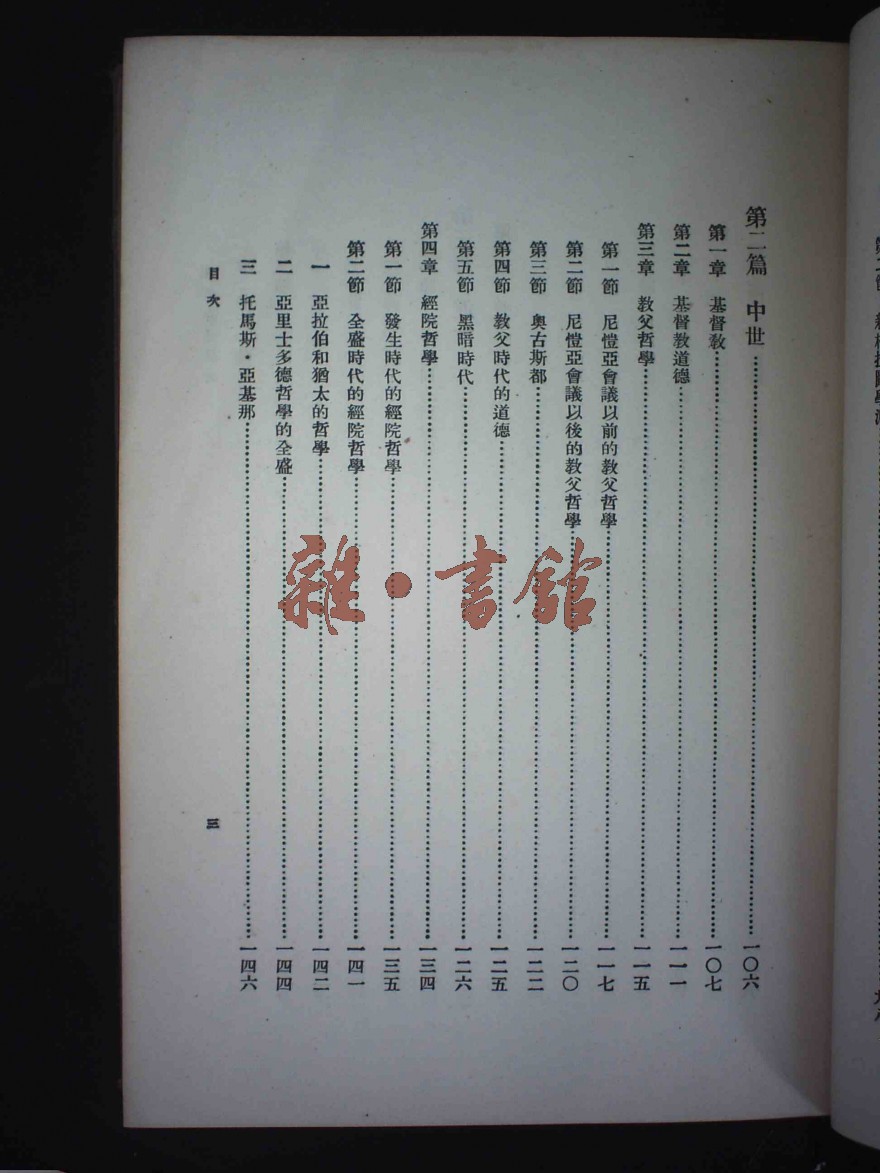 第二篇 中世……一〇六
第一章 基督教……一〇七
第二章 基督教道德……一一一
第三章 教父哲學……一一五
第一節 尼愷亞會議以前的教父哲學……一一七
第二節 尼愷亞會議以後的教父哲學……一二〇
第三節 奧古斯都……一二二
第四節 教父時代的道德……一二五
第五節 黑暗時代……一二六
第四章 經院哲學……一三四
第一節 發生時代的經院哲學……一三五
第二節 全盛時代的經院哲學……一四一
一 亞拉伯和猶太的哲學……一四二
二 亞里士多德哲學的全盛……一四四
三 托馬斯·亞基那……一四六
目次 三
雜·書館